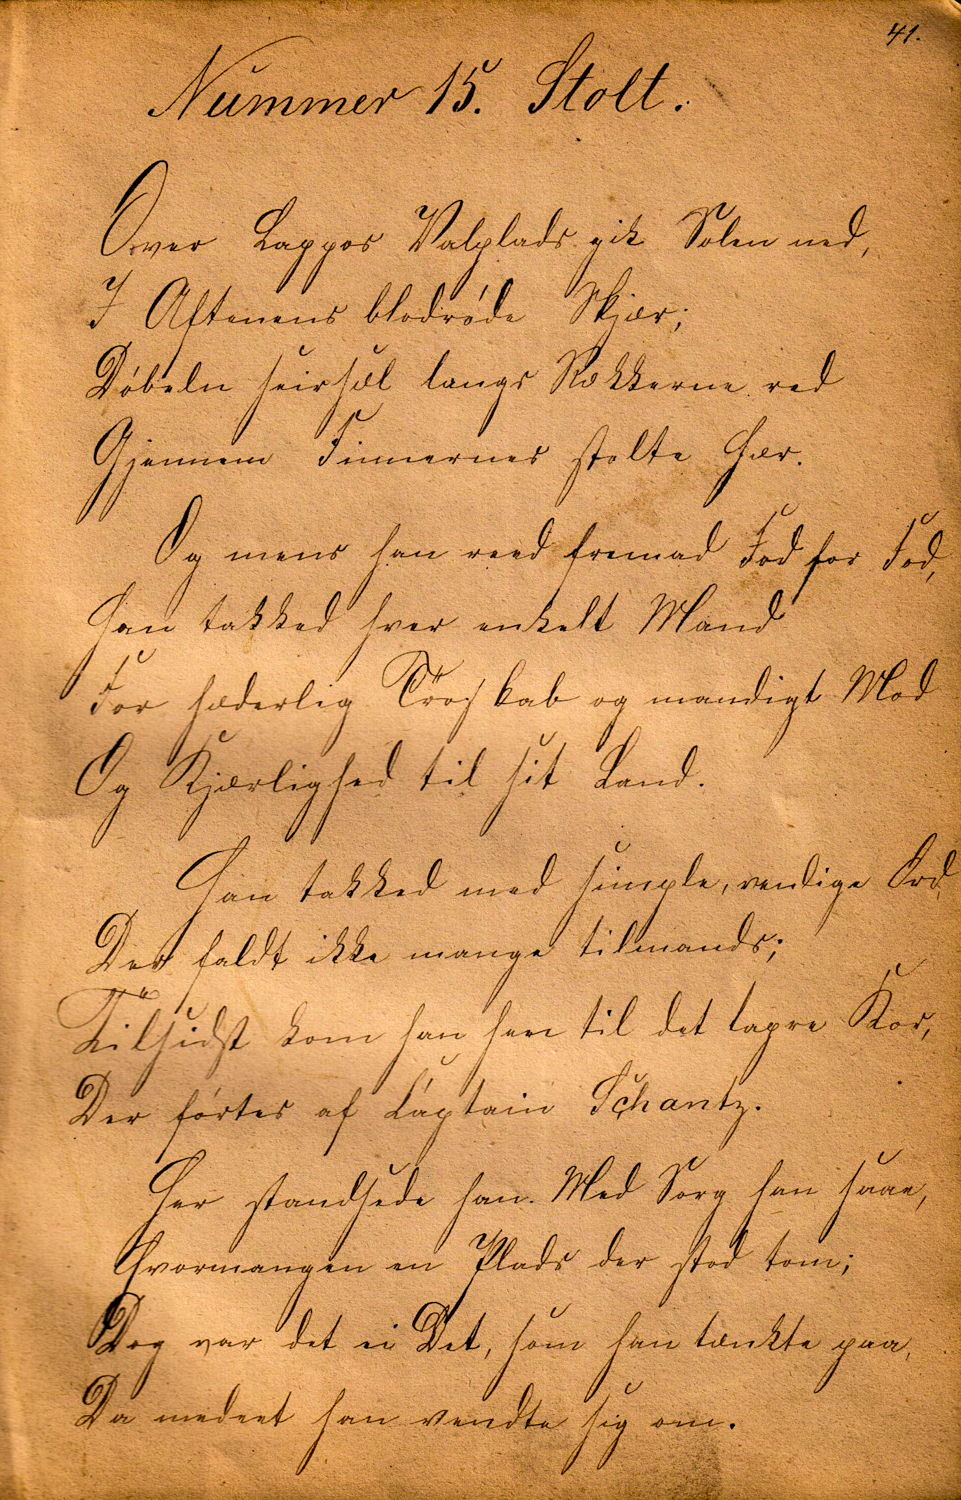 41.
Nummer 15. Stolt.
Over Lappos Valplads gik Solen ned,
I Aftenens blodrøde Skjær;
Döbeln seirsæl langs Rækkerne red
Gjennem Finnernes stolte Hær.
Og mens han reed fremad Fod for Fod,
Han takked hver enkelt Mand
For hæderlig Troskab og mandigt Mod
Og Kjærlighed til sit Land.
Han takked med simple, venlige Ord,
Der faldt ikke mange tilmands;
Tilsidst kom han hen til det tapre Kor,
Der førtes af Captain Schantz.
Her standsede han. Med Sorg han saae,
Hvormangen en Plads der stod tom;
Dog var det ei Det, som han tænkte paa,
Da medeet han vendte sig om.